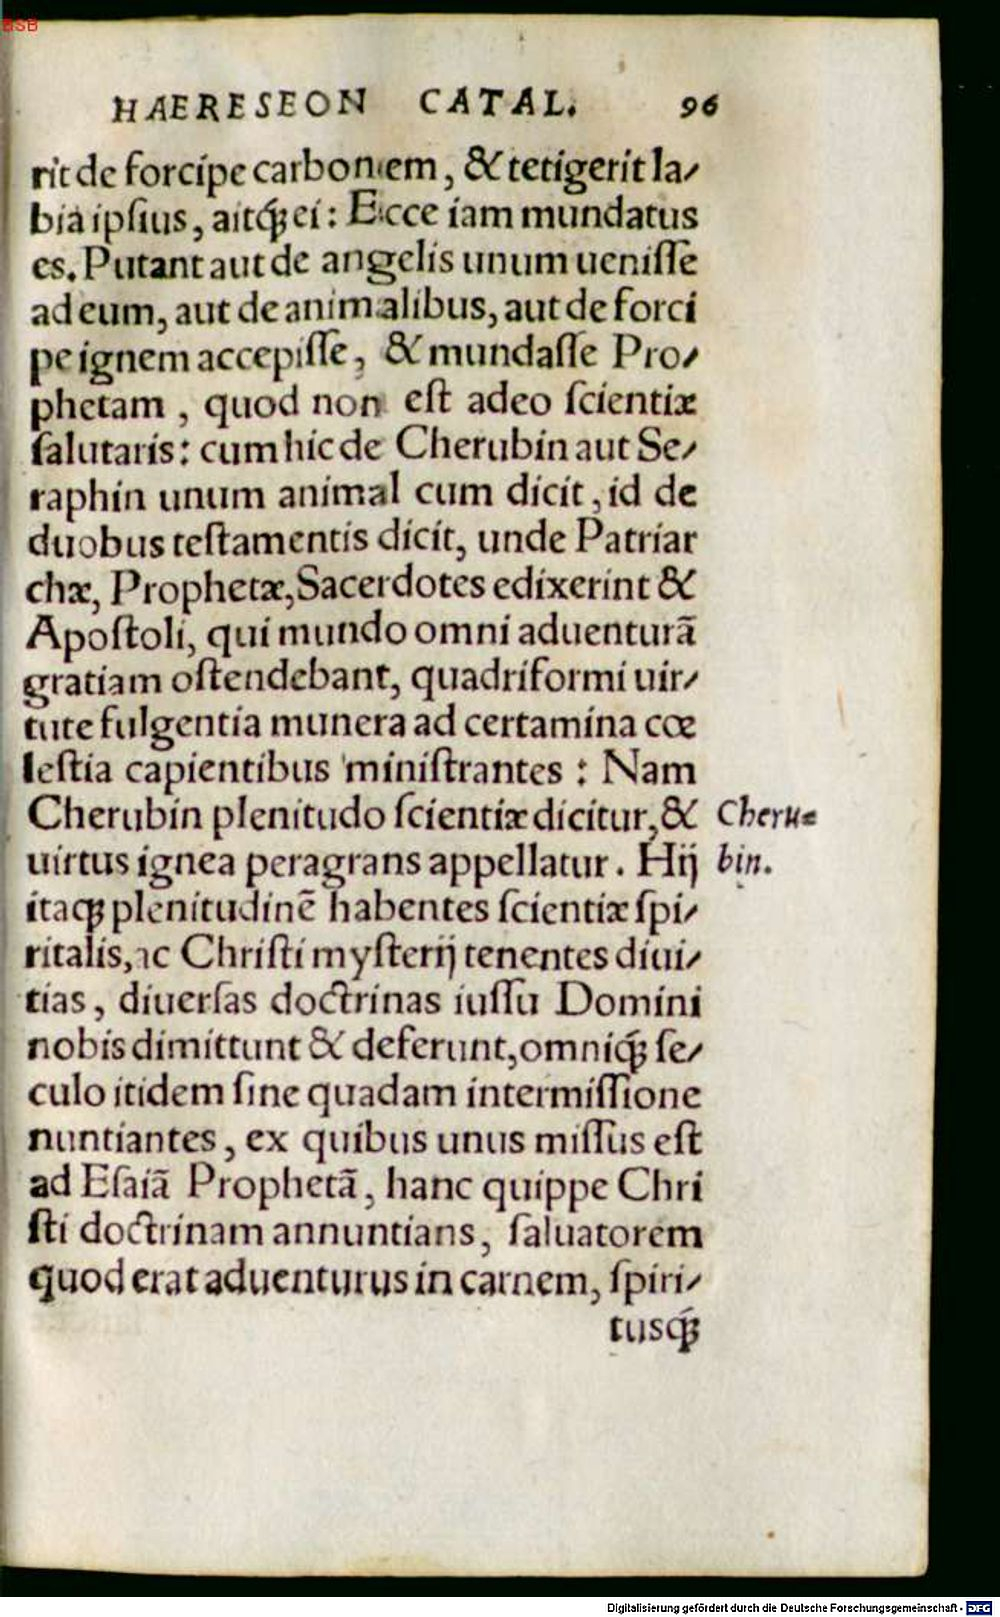 BSB
HAERESEON CATAL. 96
rit de forcipe carbonem, & tetigerit la/
bia ipſius, aitq́ꝫ ei: Ecce iam mundatus
es. Putant aut de angelis unum ueniſſe
ad eum, aut de animalibus, aut de forci
pe ignem accepiſſe, & mundaſſe Pro/
phetam, quod non eſt adeo ſcientiæ
ſalutaris: cum hic de Cherubin aut Se/
raphin unum animal cum dicit, id de
duobus teſtamentis dicit, unde Patriar
chæ, Prophetæ, Sacerdotes edixerint &
Apoſtoli, qui mundo omni aduenturã
gratiam oſtendebant, quadriformi uir/
tute fulgentia munera ad certamina cœ
leſtia capientibus miniſtrantes: Nam
Cherubin plenitudo ſcientiæ dicitur, &
uirtus ignea peragrans appellatur. Hij
itaqꝫ plenitudinẽ habentes ſcientiæ ſpi/
ritalis, ac Chriſti myſterij tenentes diui/
tias, diuerſas doctrinas iuſſu Domini
nobis dimittunt & deferunt, omniq́ꝫ ſe/
culo itidem ſine quadam intermiſſione
nuntiantes, ex quibus unus miſſus eſt
ad Eſaiã Prophetã, hanc quippe Chri
ſti doctrinam annuntians, ſaluatorem
quod erat aduenturus in carnem, ſpiri/
tusq́ꝫ
Cheru=
bin.
Digitalisierung gefördert durch die Deutsche Forschungsgemeinschaft - DFG